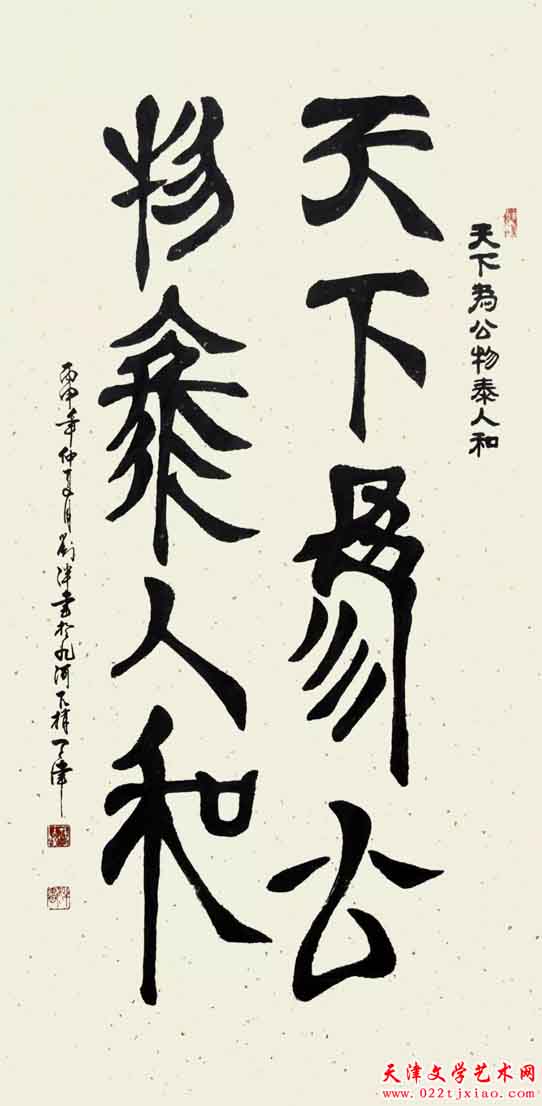 天下為公物泰人和
天下為公
物泰人和
丙申年仲夏月劉泮書於九河下梢天津
天津文学艺术网
www.022tjxiao.com